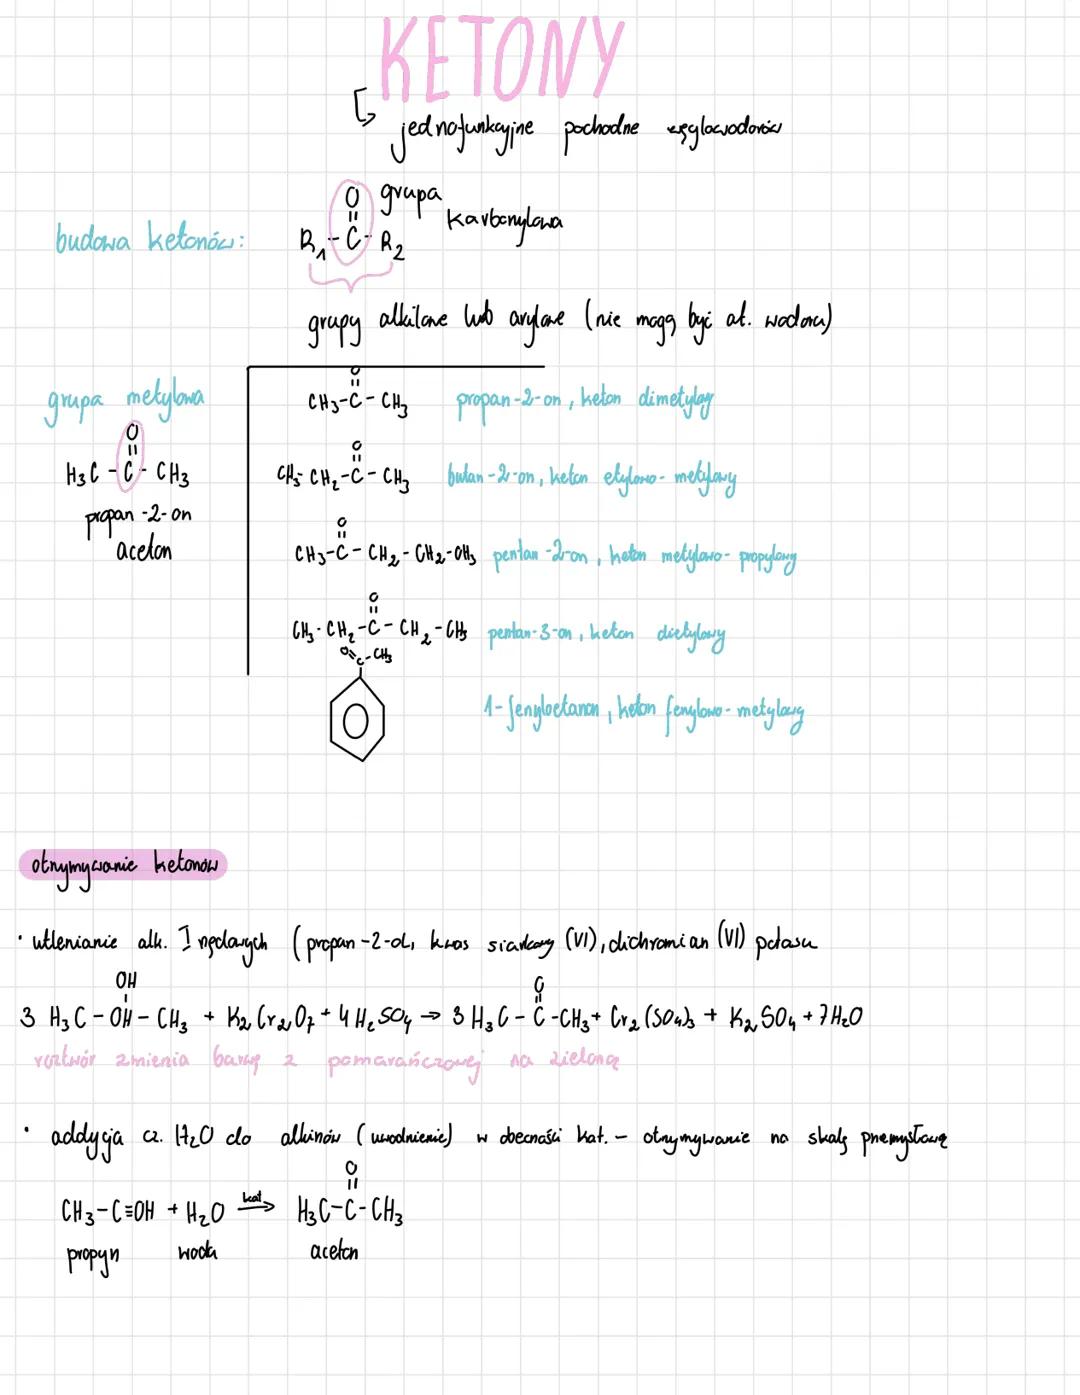 KETONY
jednofunkcyjne pochodne węglowodorów
O grupa
budowa ketonów: R₁-C-R₂ karbonylowa
grupy alkilowe lub arylowe (nie mogą być at. wodoru)
grupa metylowa
O
H₃C-C-CH₃
propan-2-on
aceton
O
CH₃-C-CH₃ propan-2-on, keton dimetylowy
O
CH₃-CH₂-C-CH₃ butan-2-on, keton etylowo-metylowy
O
CH₃-C-CH₂-CH₂-CH₃ pentan-2-on, keton metylowo-propylowy
O
CH₃-CH₂-C-CH₂-CH₃ pentan-3-on, keton dietylowy
O=C-CH₃
1-fenyloetanon, keton fenylowo-metylowy
otrzymywanie ketonów
• utlenianie alk. I rzędowych (propan-2-ol, kwas siarkowy (VI), dichromian (VI) potasu
OH O
3 H₃C-CH-CH₃ + K₂Cr₂O₇ + 4H₂SO₄ → 3 H₃C-C-CH₃ + Cr₂(SO₄)₃ + K₂SO₄ + 7H₂O
roztwór zmienia barwę z pomarańczowej na zieloną
• addycja cz. H₂O do alkinów (uwodnienie) w obecności kat. - otrzymywanie na skalę przemysłową
O
CH₃-C≡CH + H₂O kat. → H₃C-C-CH₃
propyn woda aceton